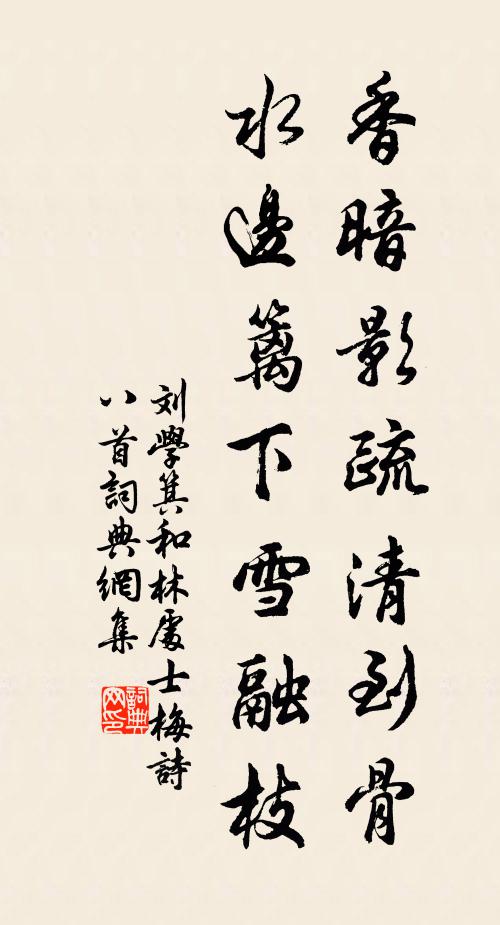 香暗影疏清到骨
水邊篱下雪融枝
刘學箕和林處士梅詩
八首詞典網集
詞典網印